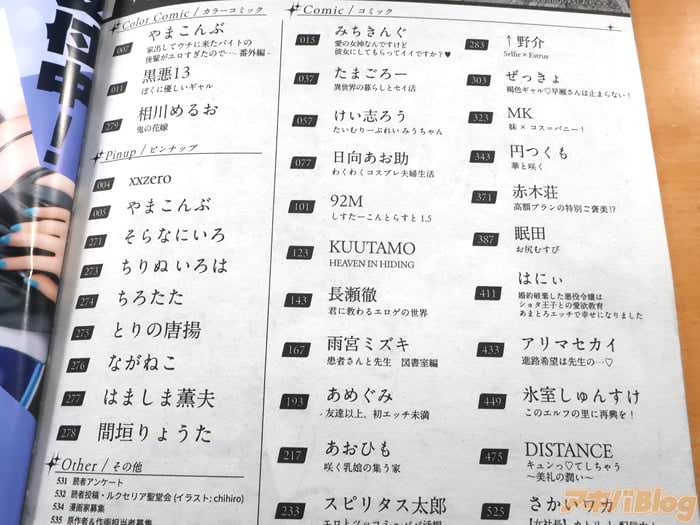 付中!
Color Comic / カラーコミック
007 やまこんぶ
家出してウチに来たバイトの
後輩がエロすぎたので…- 番外編 -
011 黒悪13
ぼくに優しいギャル
279 相川めるお
鬼の花嫁
Pinup / ピンナップ
004 xxzero
005 やまこんぶ
271 そらなにいろ
273 ちりぬいろは
274 ちろたた
275 とりの唐揚
276 ながねこ
277 はましま薫夫
278 間垣りょうた
Other / その他
531 読者アンケート
532 読者投稿・ルクセリア聖堂会 (イラスト: chihiro)
534 漫画家募集
535 原作者&作画担当者募集
Comic / コミック
015 みちきんぐ
愛の女神なんですけど
彼女にしてもらってイイですか?♥
037 たまごろー
異世界の暮らしとセイ活
057 けい志ろう
たいむりーぷれいみうちゃん
077 日向あお助
わくわくコスプレ夫婦生活
101 92M
しすたーこんとらすと 1.5
123 KUUTAMO
HEAVEN IN HIDING
143 長瀬徹
君に教わるエロゲの世界
167 雨宮ミズキ
患者さんと先生 図書室編
193 あめぐみ
友達以上、初エッチ未満
217 あおひも
咲く乳娘の集う家
233 スピリタス太郎
283 ↑野介
Selfie × Estrus
303 ぜっきょ
褐色ギャル♡早瀬さんは止まらない!
323 MK
妹 × コス=バニー!
343 円つくも
華と咲く
371 赤木荘
高額プランの特別ご褒美!?
387 眠田
お尻むすび
411 はにぃ
婚約破棄した悪役令嬢は
ショタ王子との愛欲教育
あまとろエッチで幸せになりました
433 アリマセカイ
進路希望は先生の…♡
449 氷室しゅんすけ
このエルフの里に再興を!
475 DISTANCE
キュンっ♡てしちゃう
～美礼の潤い～
525 さかいワカ
アキバBlog